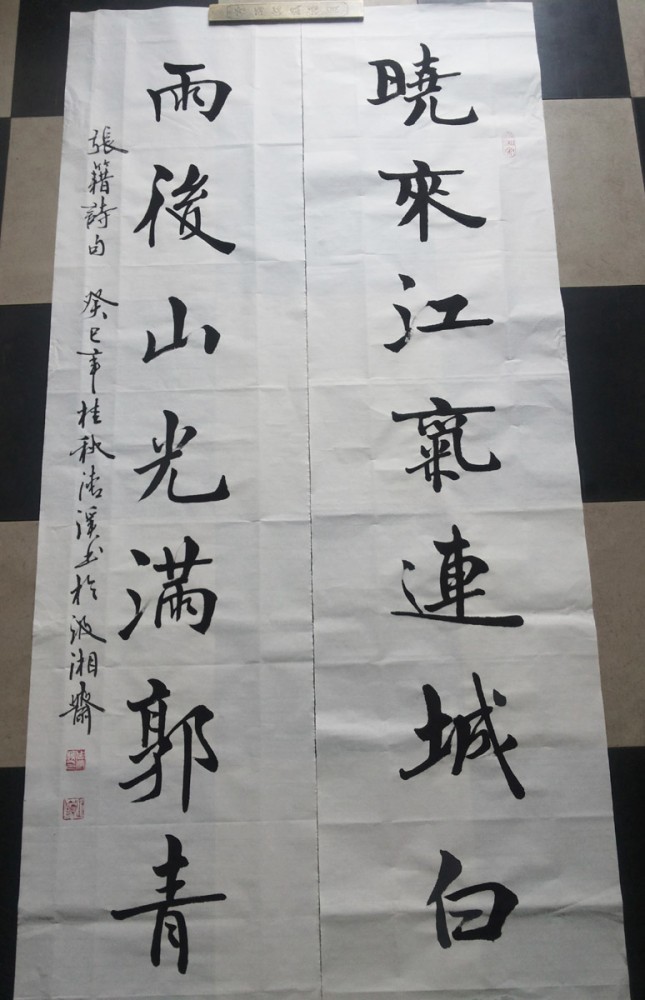 曉來江氣連城白
雨後山光滿郭青
張籍詩句 癸巳年桂秋清溪书於汲湘齋